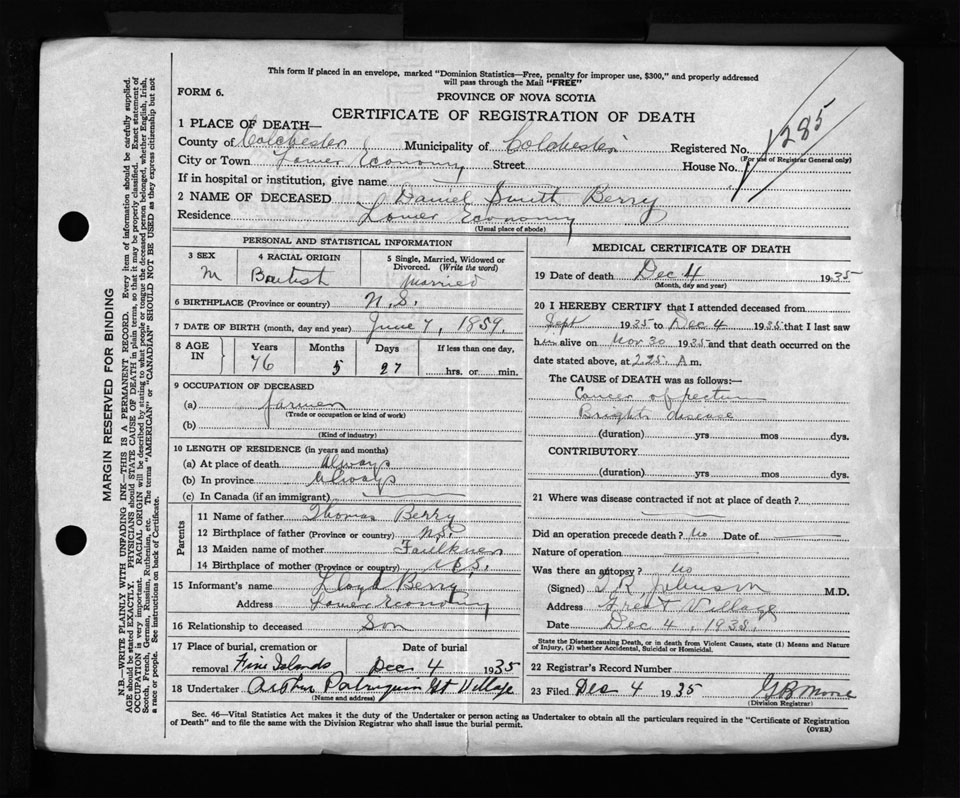 This form if placed in an envelope, marked "Dominion Statistics—Free, penalty for improper use, $300," and properly addressed
will pass through the Mail "FREE"
FORM 6.
PROVINCE OF NOVA SCOTIA
CERTIFICATE OF REGISTRATION OF DEATH
1285
1 PLACE OF DEATH—
County of Colchester Municipality of Colchester Registered No.
(For use of Registrar General only)
City or Town Lower Economy Street House No.
If in hospital or institution, give name
2 NAME OF DECEASED Daniel Smith Berry
Residence Lower Economy
(Usual place of abode)
PERSONAL AND STATISTICAL INFORMATION
3 SEX 4 RACIAL ORIGIN 5 Single, Married, Widowed or
Divorced. (Write the word)
M British Married
6 BIRTHPLACE (Province or country) N.S.
7 DATE OF BIRTH (month, day and year) June 7, 1859.
8 AGE IN Years Months Days If less than one day,
76 5 27 hrs. or min.
9 OCCUPATION OF DECEASED
(a) farmer
(Trade or occupation or kind of work)
(b)
(Kind of industry)
10 LENGTH OF RESIDENCE (in years and months)
(a) At place of death Always
(b) In province Always
(c) In Canada (if an immigrant)
Parents
11 Name of father Thomas Berry
12 Birthplace of father (Province or country) N.S.
13 Maiden name of mother Faulkner
14 Birthplace of mother (Province or country) N.S.
15 Informant's name Lloyd Berry
Address Lower Economy
16 Relationship to deceased Son
17 Place of burial, cremation or Date of burial
removal Five Islands Dec 4 1935
18 Undertaker Arthur Gt Village
(Name and address)
MEDICAL CERTIFICATE OF DEATH
19 Date of death Dec 4 1935
(Month, day and year)
20 I HEREBY CERTIFY that I attended deceased from
Sept 1935 to Dec 4 1935 that I last saw
him alive on Nov 30 1935 and that death occurred on the
date stated above, at 2.25 A m.
The CAUSE of DEATH was as follows:—
Cancer of rectum
Brights disease
(duration) yrs mos dys.
CONTRIBUTORY
(duration) yrs mos dys.
21 Where was disease contracted if not at place of death?
Did an operation precede death? no Date of
Nature of operation
Was there an autopsy? no
(Signed) T R Johnson M.D.
Address Great Village
Date Dec 4, 1935.
State the Disease causing Death, or in death from Violent Causes, state (1) Means and Nature
of Injury, (2) whether Accidental, Suicidal or Homicidal.
22 Registrar's Record Number
23 Filed Dec 4 1935 G B Moore
(Division Registrar)
Sec. 46—Vital Statistics Act makes it the duty of the Undertaker or person acting as Undertaker to obtain all the particulars required in the "Certificate of Registration
of Death" and to file the same with the Division Registrar who shall issue the burial permit.
(OVER)
MARGIN RESERVED FOR BINDING
N.B.—WRITE PLAINLY WITH UNFADING INK—THIS IS A PERMANENT RECORD. Every item of information should be carefully supplied.
AGE should be stated EXACTLY. PHYSICIANS should STATE CAUSE OF DEATH in plain terms, so that it may be properly classified. Exact statement of
OCCUPATION is very important. RACIAL ORIGIN will be described by stating to what people or tongue the deceased person belonged, whether English, Irish,
Scotch, French, German, Russian, Ruthenian, etc. The terms "AMERICAN" or "CANADIAN" SHOULD NOT BE USED as they express citizenship but not
a race or people. See instructions on back of Certificate.